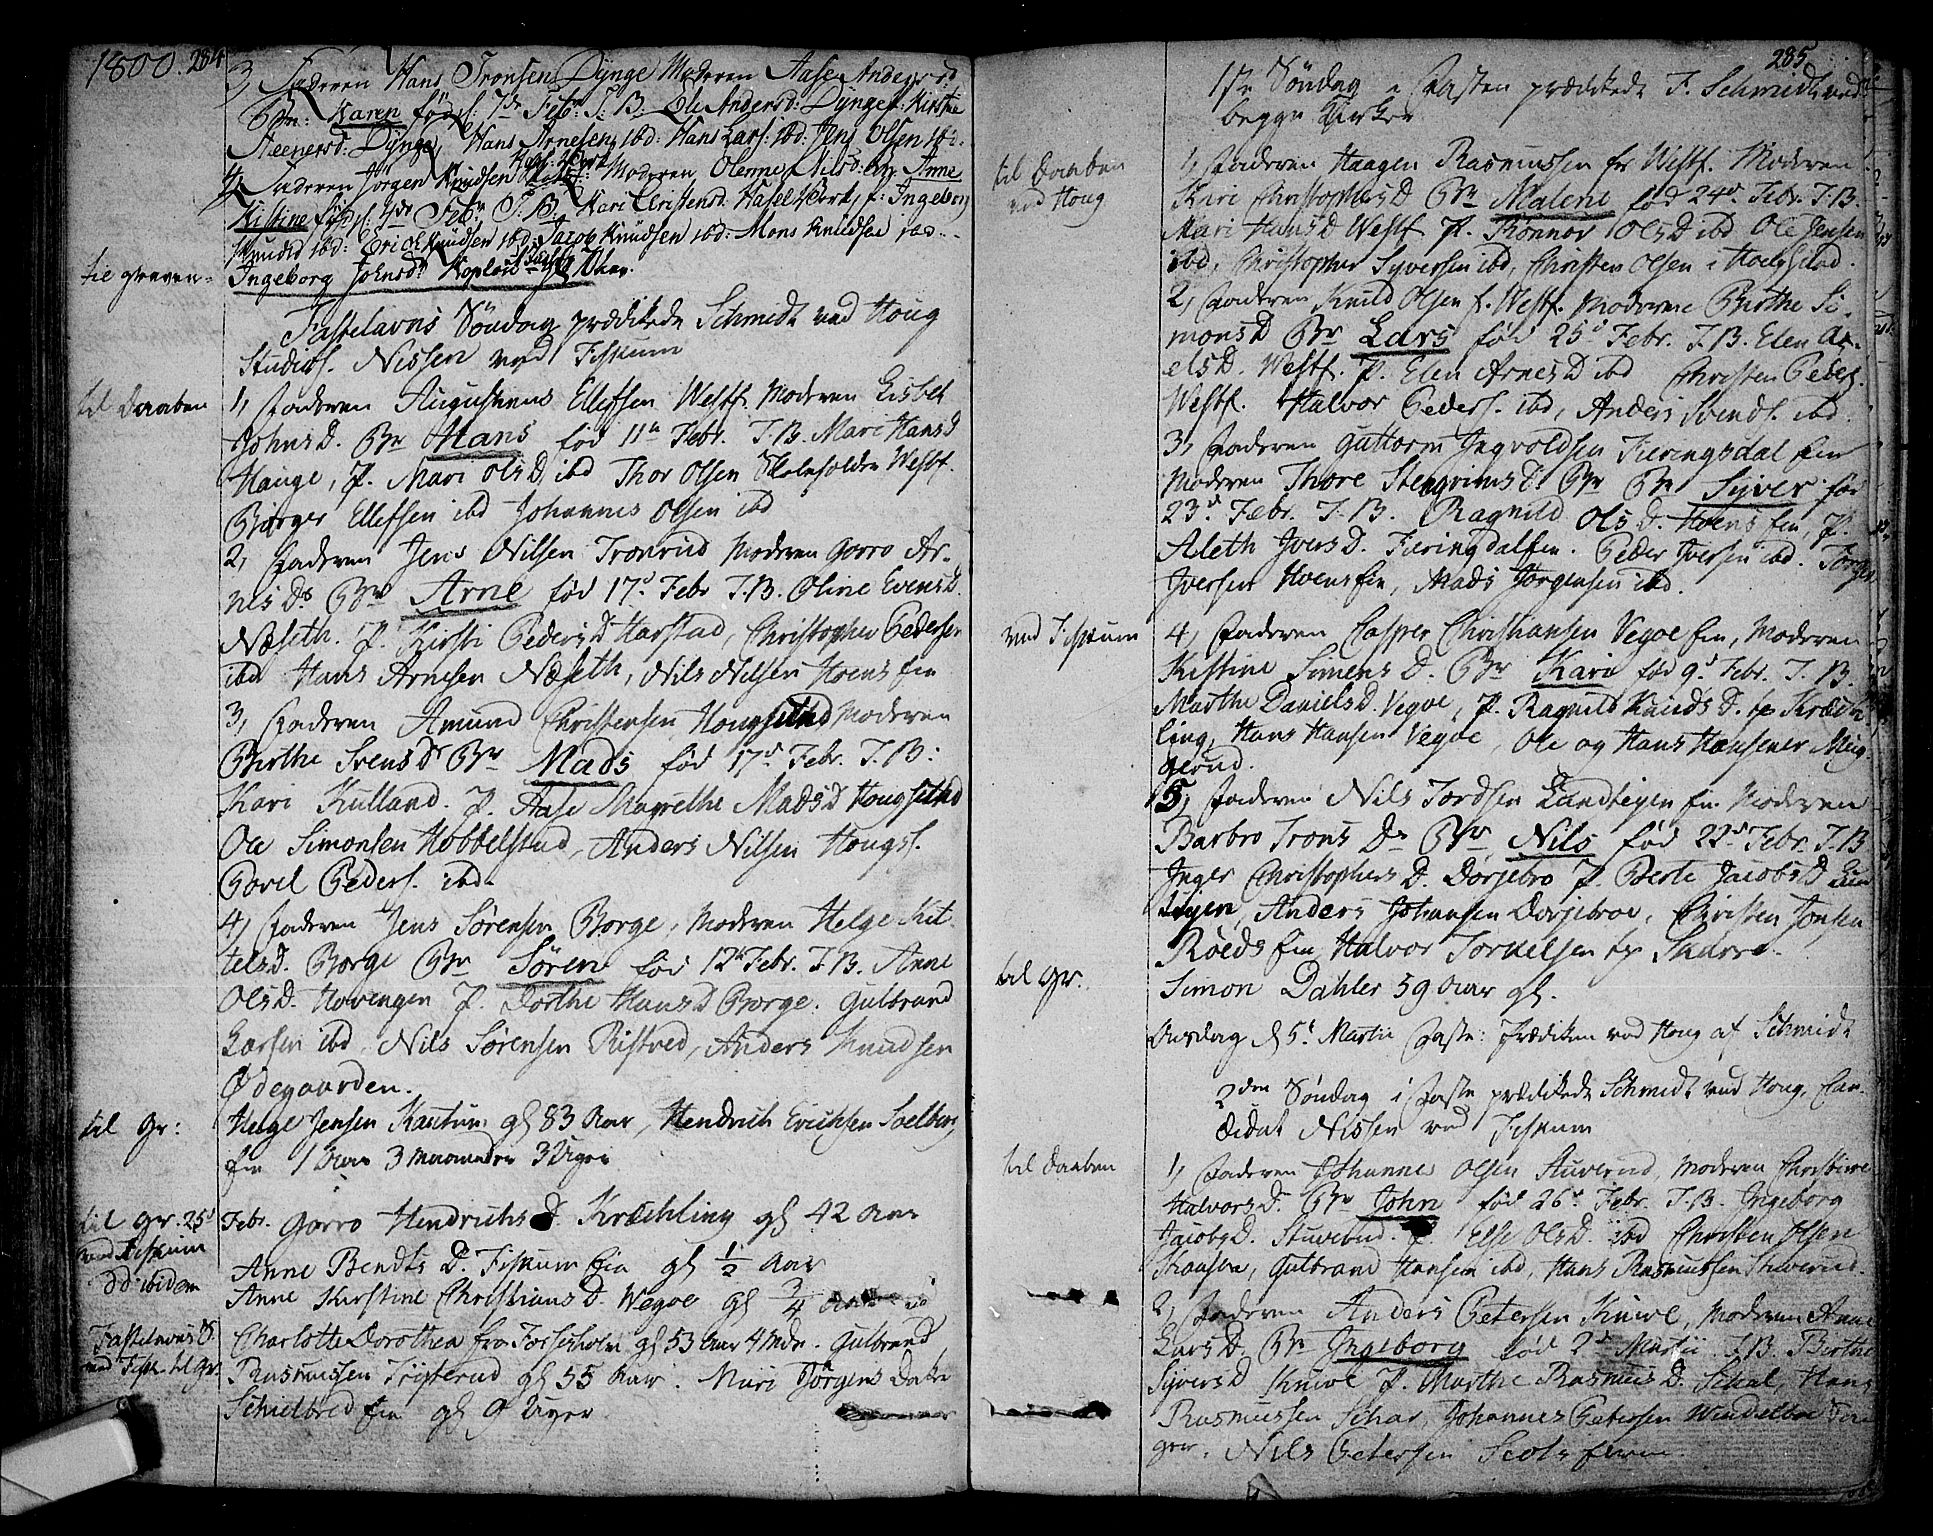 1800. 284
3, Faderen Hans Tronsen Dynge Moderen Aase Andersd
Bn: Karen fød 7de Febr T: B: Eli Andersd: Dynge f: Kirstie
Steenersd: Dynge, Hans Arnesen ibd: Hans Lars: ibd: Jens Olsen ibd.
4, Faderen Jørgen Knudsen Moderen Olenne Nilsd: Bn Anne
Kistine fød 4de Febr T: B: Kari Cristensd: Hasel f: Ingeborg
Knudsd ibd: Erich Knudsen ibd: Jacob Knudsen ibd: Mons Knudsen ibd
til graven
Ingeborg Johnsd Aar.
Fastelavns Søndag prædikede Schmidt ved Houg
Studios. Nissen ved Fiskum
til Daaben
1, Faderen Augustinus Ellefsen Westf. Moderen Lisbet
JohnsD. Bn Hans fød 11te Febr. T.B. Mari HansD
Hauge, P. Mari OlsD. ibd Thor Olsen Skoleholder Westf.
Børger Ellefsen ibd Johannes Olsen ibd
2, Faderen Jens Nilsen Tronrud Moderen Gorro Ar-
nes D. Bn Arne fød 17d Febr T.B. Oline EvensD.
Næseth. P. Kirsti PedersD Harstad, Christopher Pedersen
ibd Hans Arnesen Næseth, Nils Nilsen Hoens fin
3, Faderen Amund Christensen Hougsetad Moderen
Birthe SvensD Bn Mads fød 17d Febr. T.B:
Kari Kulland. P. Aase Magrethe MadsD Hougsetad
Ole Simonsen Hobbelstad, Anders Nilsen Hougs.
Povel Peders. ibd.
4, Faderen Jens Sørensen Borge, Moderen Helge Kit-
telsD. Borge Bn Sören fød 12te Febr. T.B. Anne
OlsD. Hovengen P. Dorthe HansD Borge. Gulbrand
Larsen ibd, Nils Sørensen Ristved, Anders Knudsen
Ødegaarden.
til Gr:
Helge Jensen Kastum gl 83 Aar, Hendrich Erichsen Soelberg
fin 1 Aar 3 Maaneder 3 Uger
til Gr. 25d Febr. Gorro Hendrichs D. Kræchling gl 42 Aar
ved Fiskum
Anne Bendts D. Fiskum Ein gl 1/2 Aar
dd ibidem
Anne Kirstine Christians D. Wegoe gl 3/4 Aar
Fastelavns S.
ved Fisk. til Gr.
Charlotte Dorothea fra Fossesholm gl 53 Aar 4 Mdr. Gulbrand
Rasmussen gl 55 Aar. Mari Jörgens Datter
Schielbred fin gl 9 Uger
285
1ste Søndag i Fasten prædikede F. Schmidt ved
begge Kirker
til Daaben
ved Houg
1, Faderen Haagen Rasmussen fr Westf. Moderen
Kari ChristophersD Bn Malene fød 24d Febr. T.B.
Mari HansD Westf. P. Rønnov OlsD ibd Ole Jensen
ibd, Christopher Syversen ibd, Christen Olsen i Hougsetad.
2, Faderen Knud Olsen f. Westf. Moderen Birthe Si-
monsD Bn Lars fød 25d Febr. T.B. Elen Ax-
elsD. Westf. P. Elen ArnesD ibd Christen Peders.
Westf. Halvor Peders. ibd, Anders Svends. ibd.
3, Faderen Guttorm Ingvoldsen Fieringsdal fin
Moderen Thore Stengrims D. Bn Syver fød
23d Febr. T.B. Ragnild OlsD. Hoens fin, P.
Aleth IversD. Fieringdalfin. Peder Iversen ibd. Torger
Iversen Hoensfin, Mads Jørgensen ibd.
ved Fiskum
4, Faderen Casper Christiansen Vegoe fin, Moderen
Kistine Simens D. Bn Kari fød 9d Febr. T.B.
Marthe DanielsD. Vegoe, P. Ragnild Knuds D. Kræch-
ling, Hans Hansen Vegoe, Ole og Hans Hansener Mug-
gerud.
5, Faderen Nils Tordsen Landtegen fin Moderen
Barbro Trons D. Bn Nils fød 22d Febr. T.B
Inger Christophers D. Dorjebro P. Berte JacobsD Lan
tegen, Anders Johansen Dorjebroe, Christen Jonsen
Røeds fin Halvor Skarre.
til Gr.
Simon Dahler 59 Aar gl.
Onsdag d 5t Martii Faste: Prædiken ved Houg af Schmidt
2den Søndag i Faste prædikede Schmidt ved Houg, Can-
didat Nissen ved Fiskum
til Daaben
1, Faderen Johannes Olsen Stuverud, Moderen Christine
Halvors D. Bn John fød 26d Febr. T.B. Ingeborg
JacobsD. Stuverud. P. Else OlsD. ibd Christen Olsen
Gulbrand Hansen ibd, Hans Rasmussen Stuverud.
2, Faderen Anders Petersen Knive, Moderen Anne
LarsD. Bn Ingeborg fød 2d Martii T.B. Birthe
SyversD Knive P. Marthe RasmusD. Hans
Rasmussen Johannes Petersen
Nils Petersen